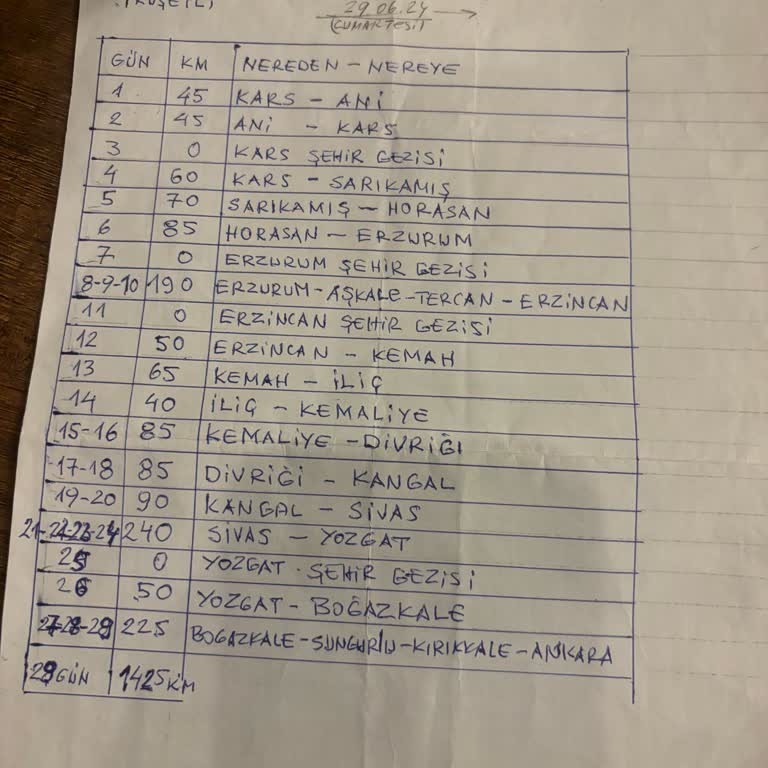 29.06.24
(CUMARTESİ)
GÜN KM NEREDEN - NEREYE
1 45 KARS - ANİ
2 45 ANİ - KARS
3 0 KARS ŞEHİR GEZİSİ
4 60 KARS - SARIKAMIŞ
5 70 SARIKAMIŞ - HORASAN
6 85 HORASAN - ERZURUM
7 0 ERZURUM ŞEHİR GEZİSİ
8-9-10 190 ERZURUM-AŞKALE-TERCAN-ERZİNCAN
11 0 ERZİNCAN ŞEHİR GEZİSİ
12 50 ERZİNCAN - KEMAH
13 65 KEMAH - İLİÇ
14 40 İLİÇ - KEMALİYE
15-16 85 KEMALİYE - DİVRİĞİ
17-18 85 DİVRİĞİ - KANGAL
19-20 90 KANGAL - SİVAS
21-22-23-24 240 SİVAS - YOZGAT
25 0 YOZGAT ŞEHİR GEZİSİ
26 50 YOZGAT - BOĞAZKALE
27-28-29 225 BOGAZKALE-SUNGURLU-KIRIKKALE-ANKARA
29 GÜN 1425 KM